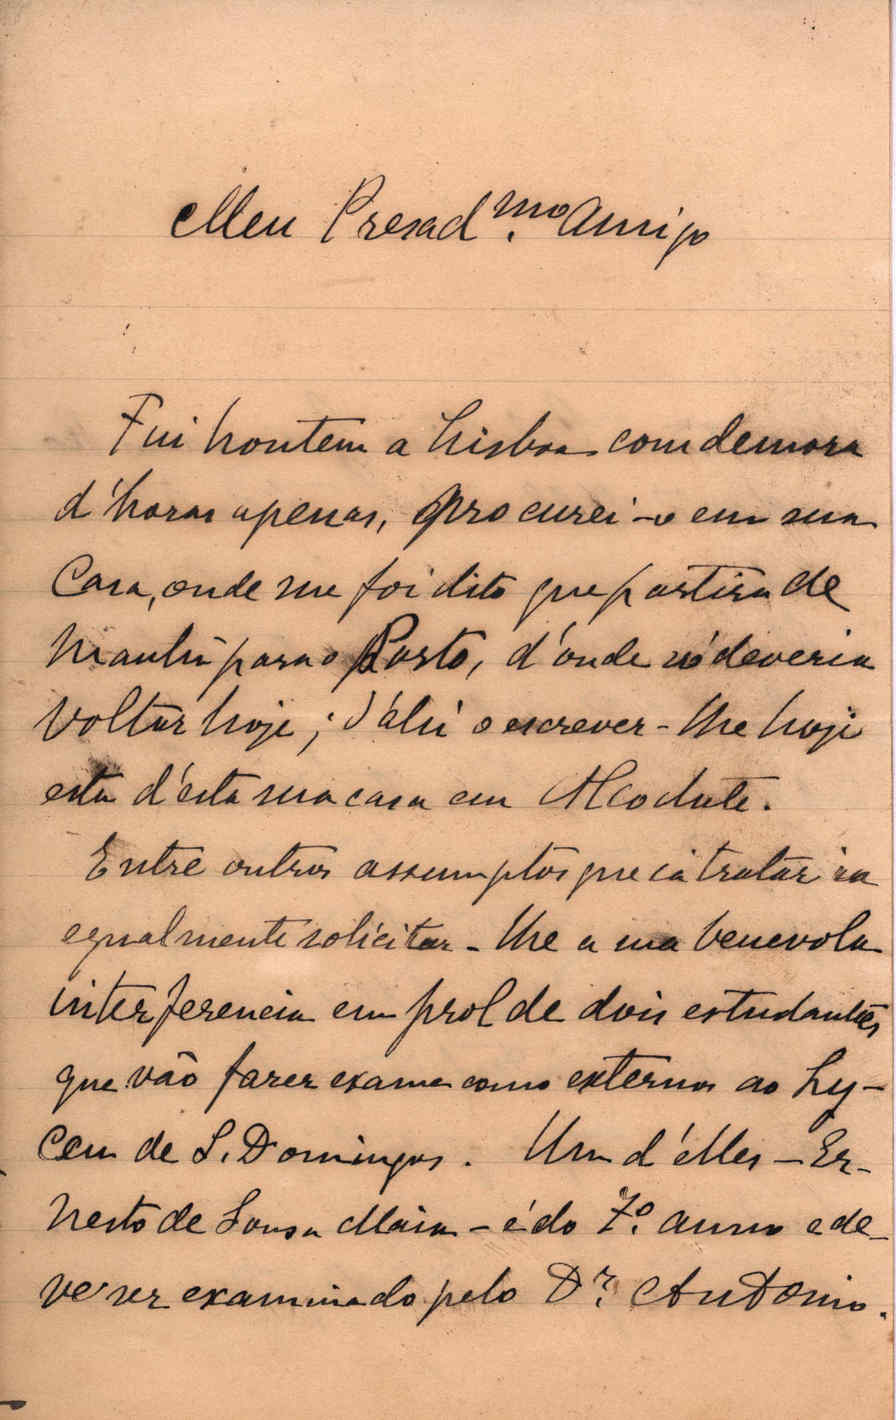 Meu Presad.mo Amigo
Fui hontem a Lisboa com demora
d'horas apenas, procurei-o em sua
Casa, onde me foi dito que partira de
manhã para o Porto, d'onde só deveria
voltar hoje; d'ahi o escrever-lhe hoje
esta d'esta sua casa em Alcochete.
Entre outros assumptos que ia tratar ia
egualmente solicitar-lhe a sua benevola
interferencia em prol de dois estudantes
que vão fazer exame como externos ao Ly-
ceu de S. Domingos. Um d'elles - Er-
nesto de Sousa Maia - é do 7.º anno e de-
ve ser examinado pelo Dr. Antonio.